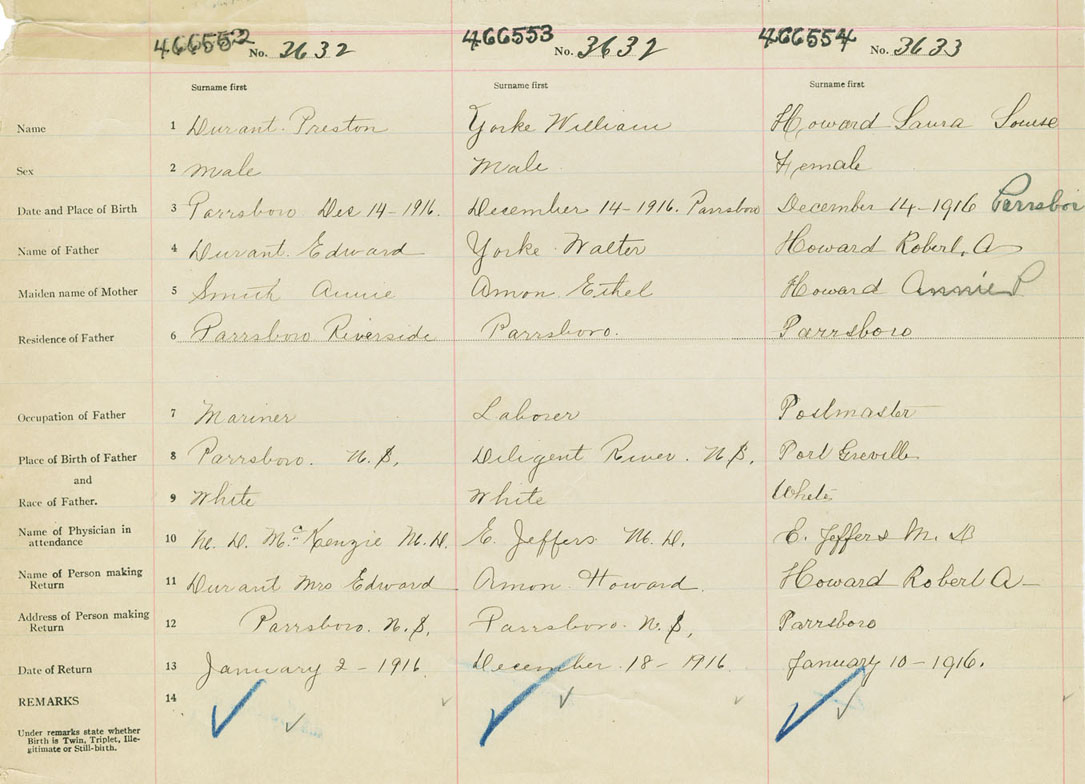 466552 No. 3632 466553 No. 3632 466554 No. 3633
Surname first Surname first Surname first
Name 1 Durant Preston Yorke William Howard Laura Louise
Sex 2 Male Male Female
Date and Place of Birth 3 Parrsboro Dec 14-1916. December 14-1916. Parrsboro December 14-1916 Parrsboro
Name of Father 4 Durant Edward Yorke Walter Howard Robert. A
Maiden name of Mother 5 Smith Annie Amon Ethel Howard Annie P
Residence of Father 6 Parrsboro Riverside Parrsboro. Parrsboro
Occupation of Father 7 Mariner Laborer Postmaster
Place of Birth of Father 8 Parrsboro. N.S. Diligent River. N.S. Port Greville
and
Race of Father. 9 White White White
Name of Physician in attendance 10 M. D. McKenzie M.D. E. Jeffers M.D. E. Jeffers M. D
Name of Person making Return 11 Durant Mrs Edward Amon Howard. Howard Robert A-
Address of Person making Return 12 Parrsboro. N.S. Parrsboro. N.S. Parrsboro
Date of Return 13 January 2-1916. December 18-1916. January 10-1916.
REMARKS 14
Under remarks state whether
Birth is Twin, Triplet, Ille-
gitimate or Still-birth.